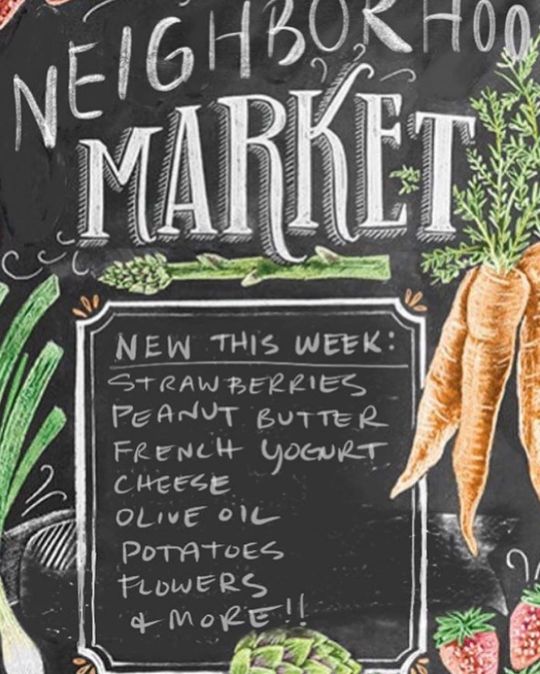 NEIGHBORHOO
MARKET
NEW THIS WEEK:
STRAWBERRIES
PEANUT BUTTER
FRENCH YOGURT
CHEESE
OLIVE OIL
POTATOES
FLOWERS
& MORE!!